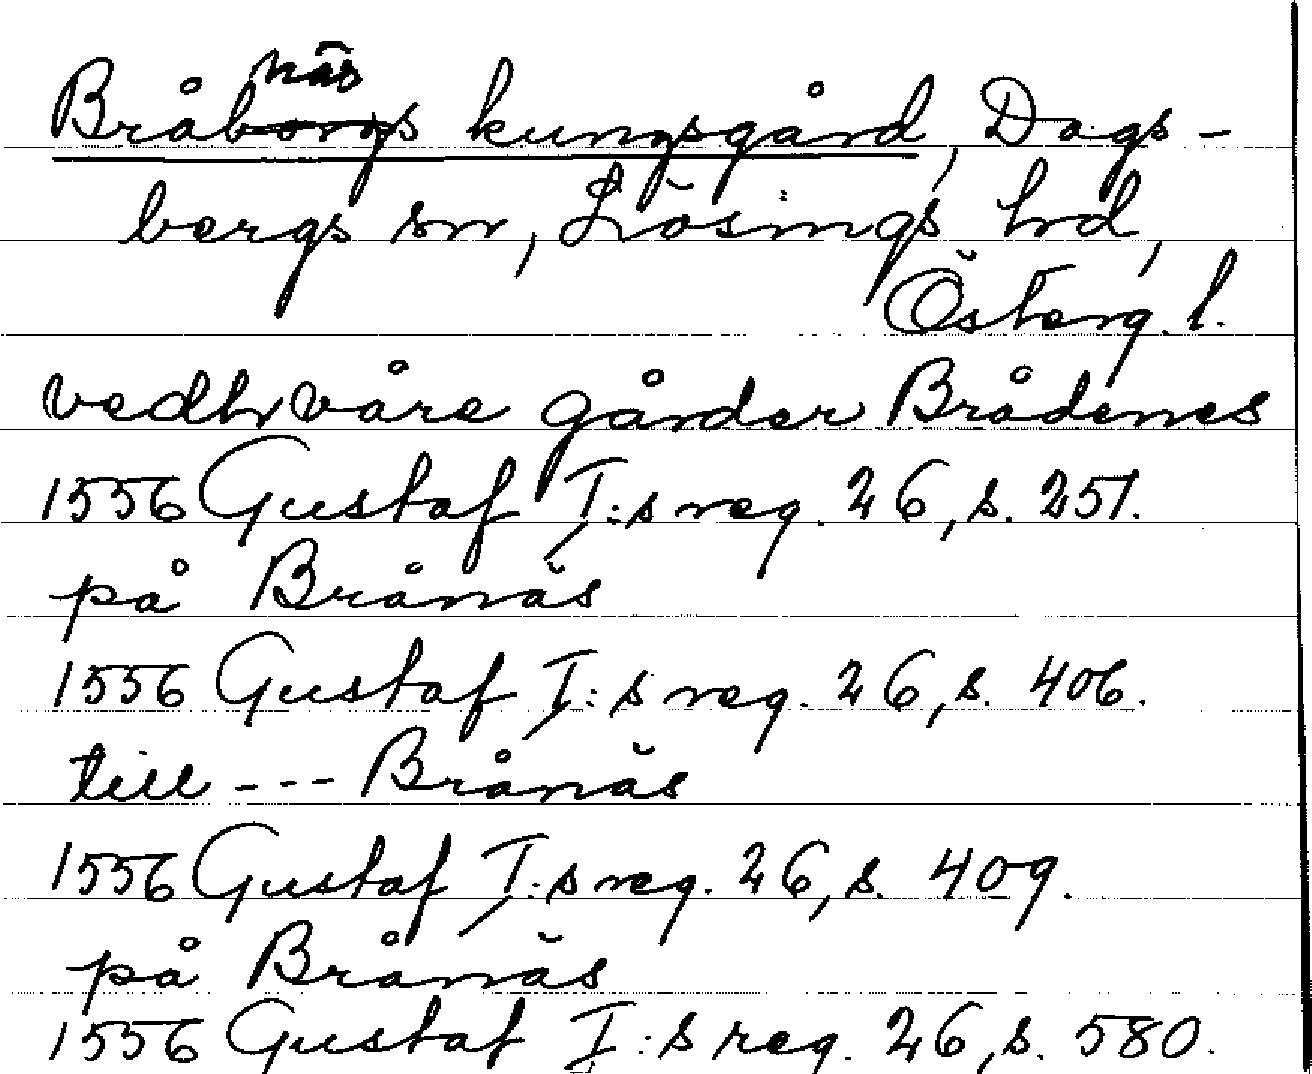 näs
Bråborgs kungsgård, Dags-
bergs sn, Lösings hd,
Österg. l.
vedh våre gårder Brådenes
1556 Gustaf I:s reg. 26, s. 251.
på Brånäs
1556 Gustaf I:s reg. 26, s. 406.
till --- Brånäs
1556 Gustaf I:s reg. 26, s. 409.
på Brånäs
1556 Gustaf I:s reg. 26, s. 580.